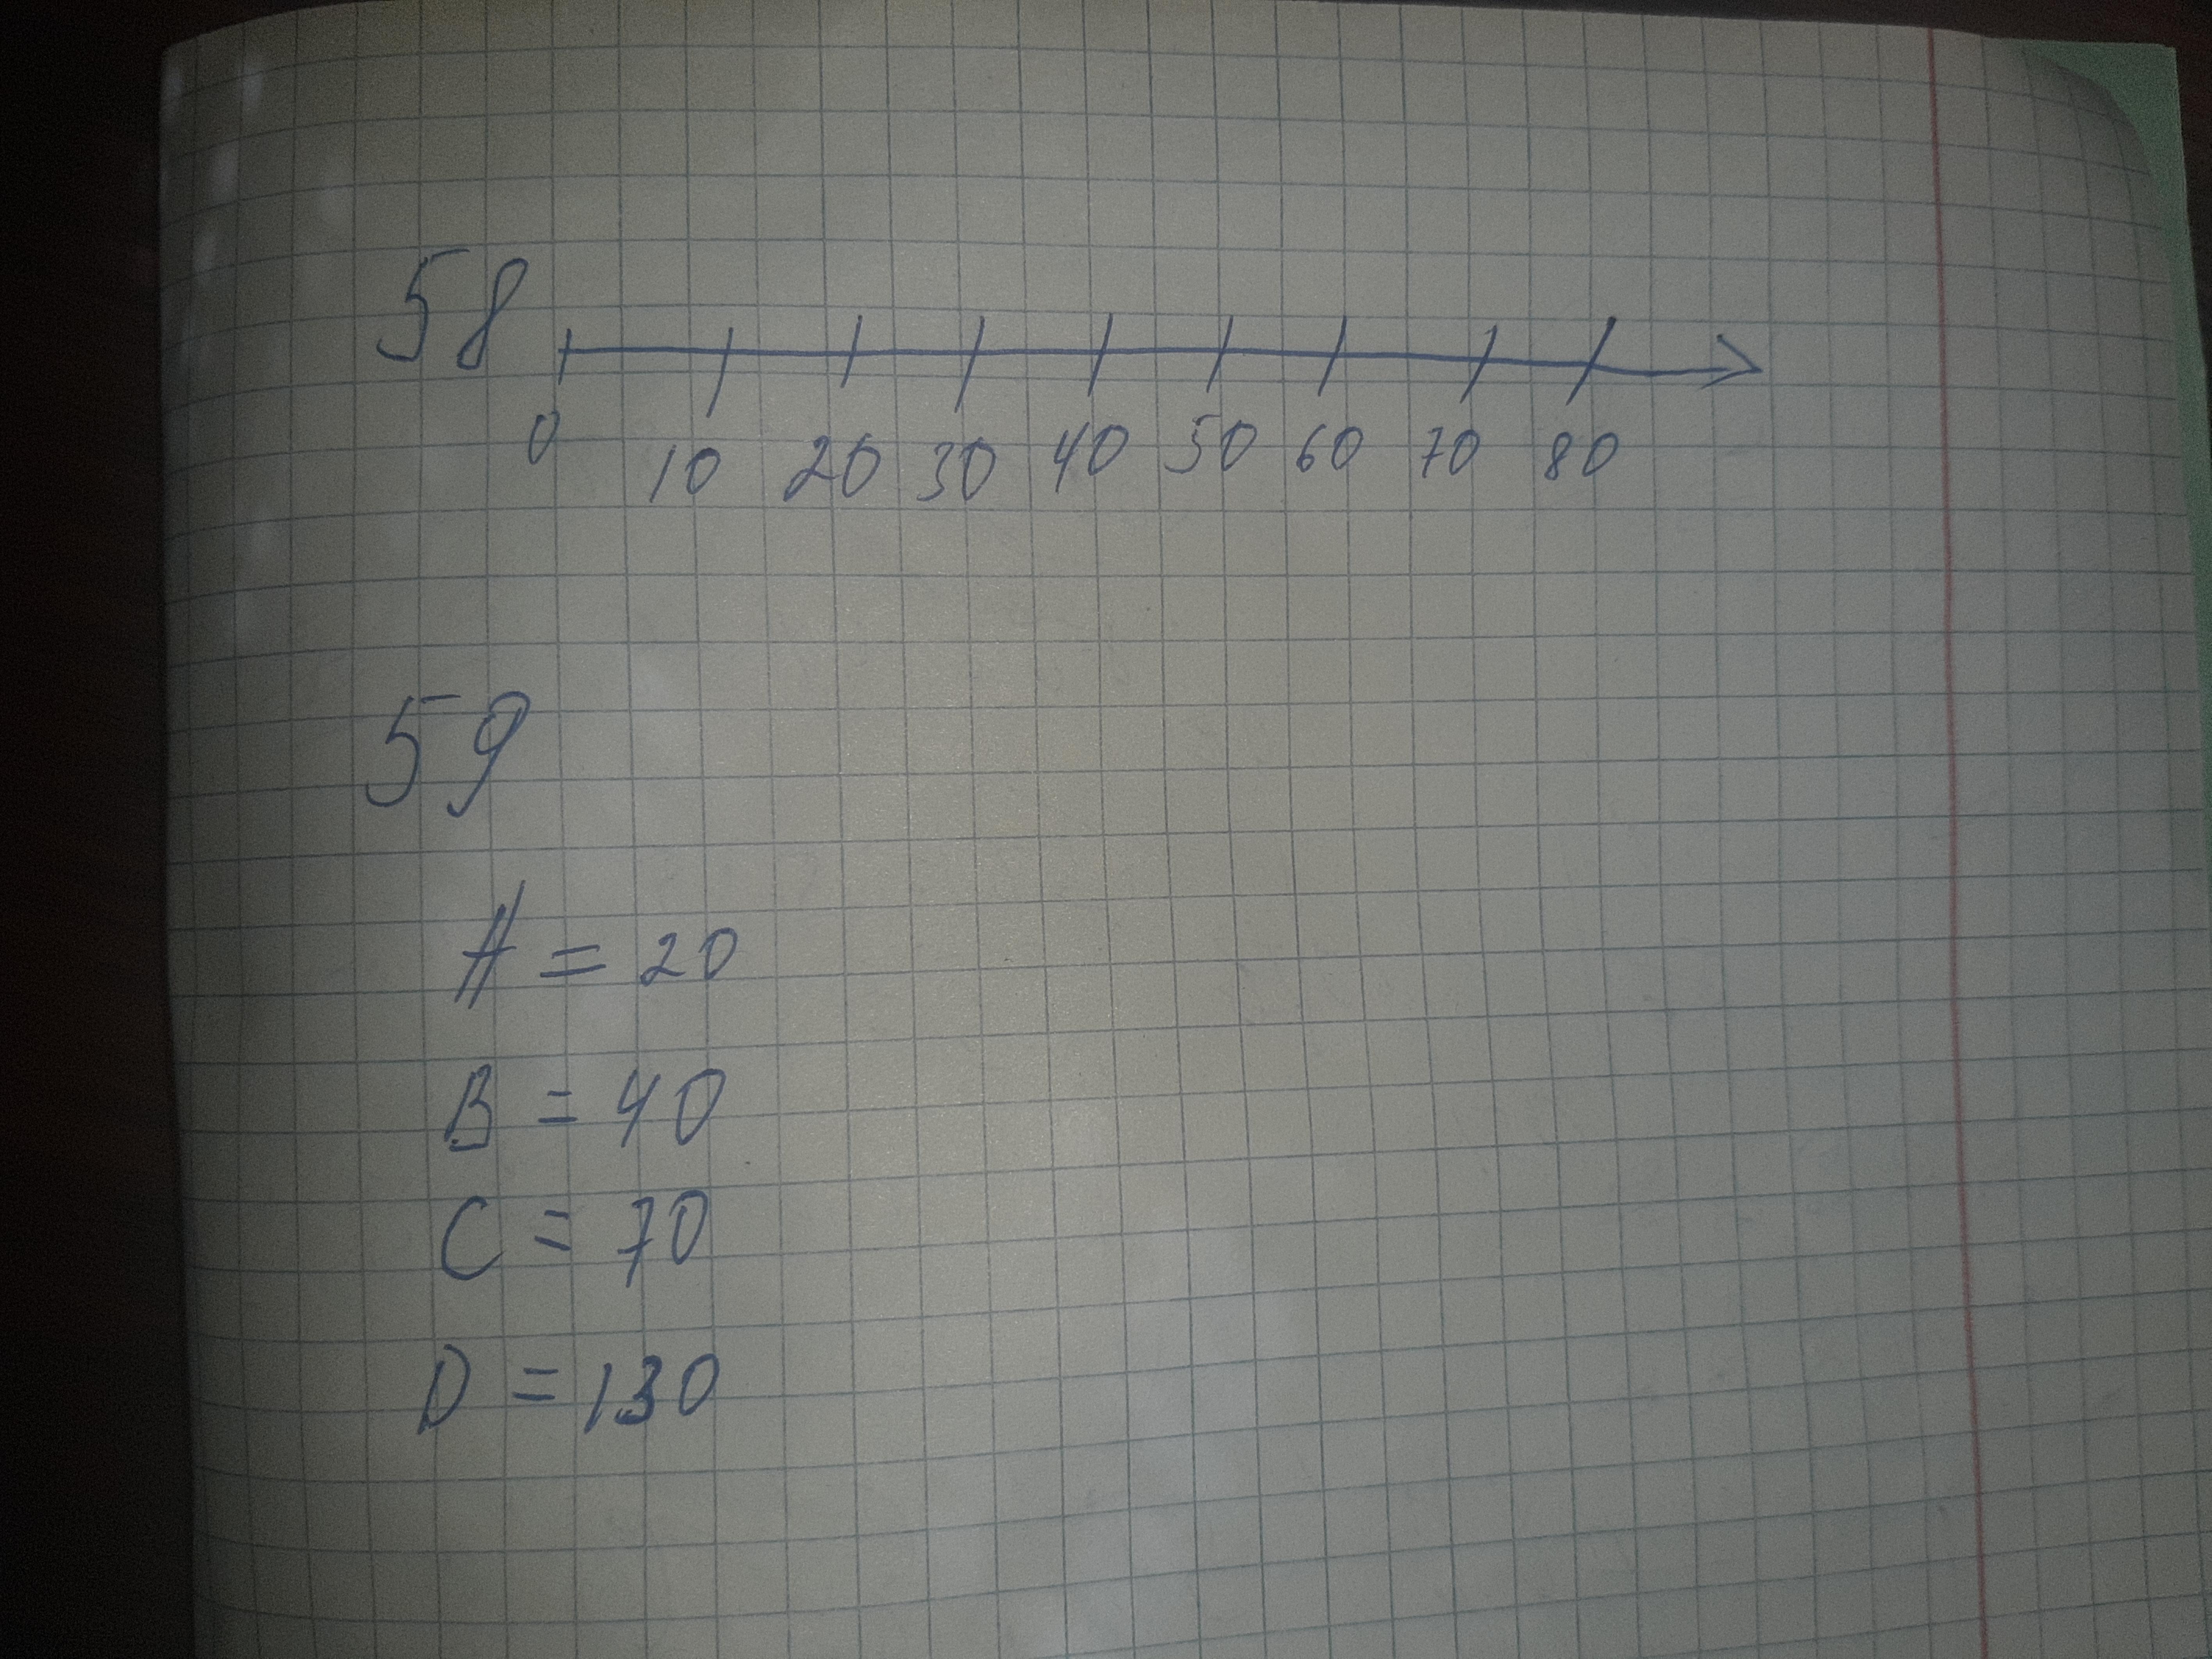 58
0 10 20 30 40 50 60 70 80
59
A = 20
B = 40
C = 70
D = 130